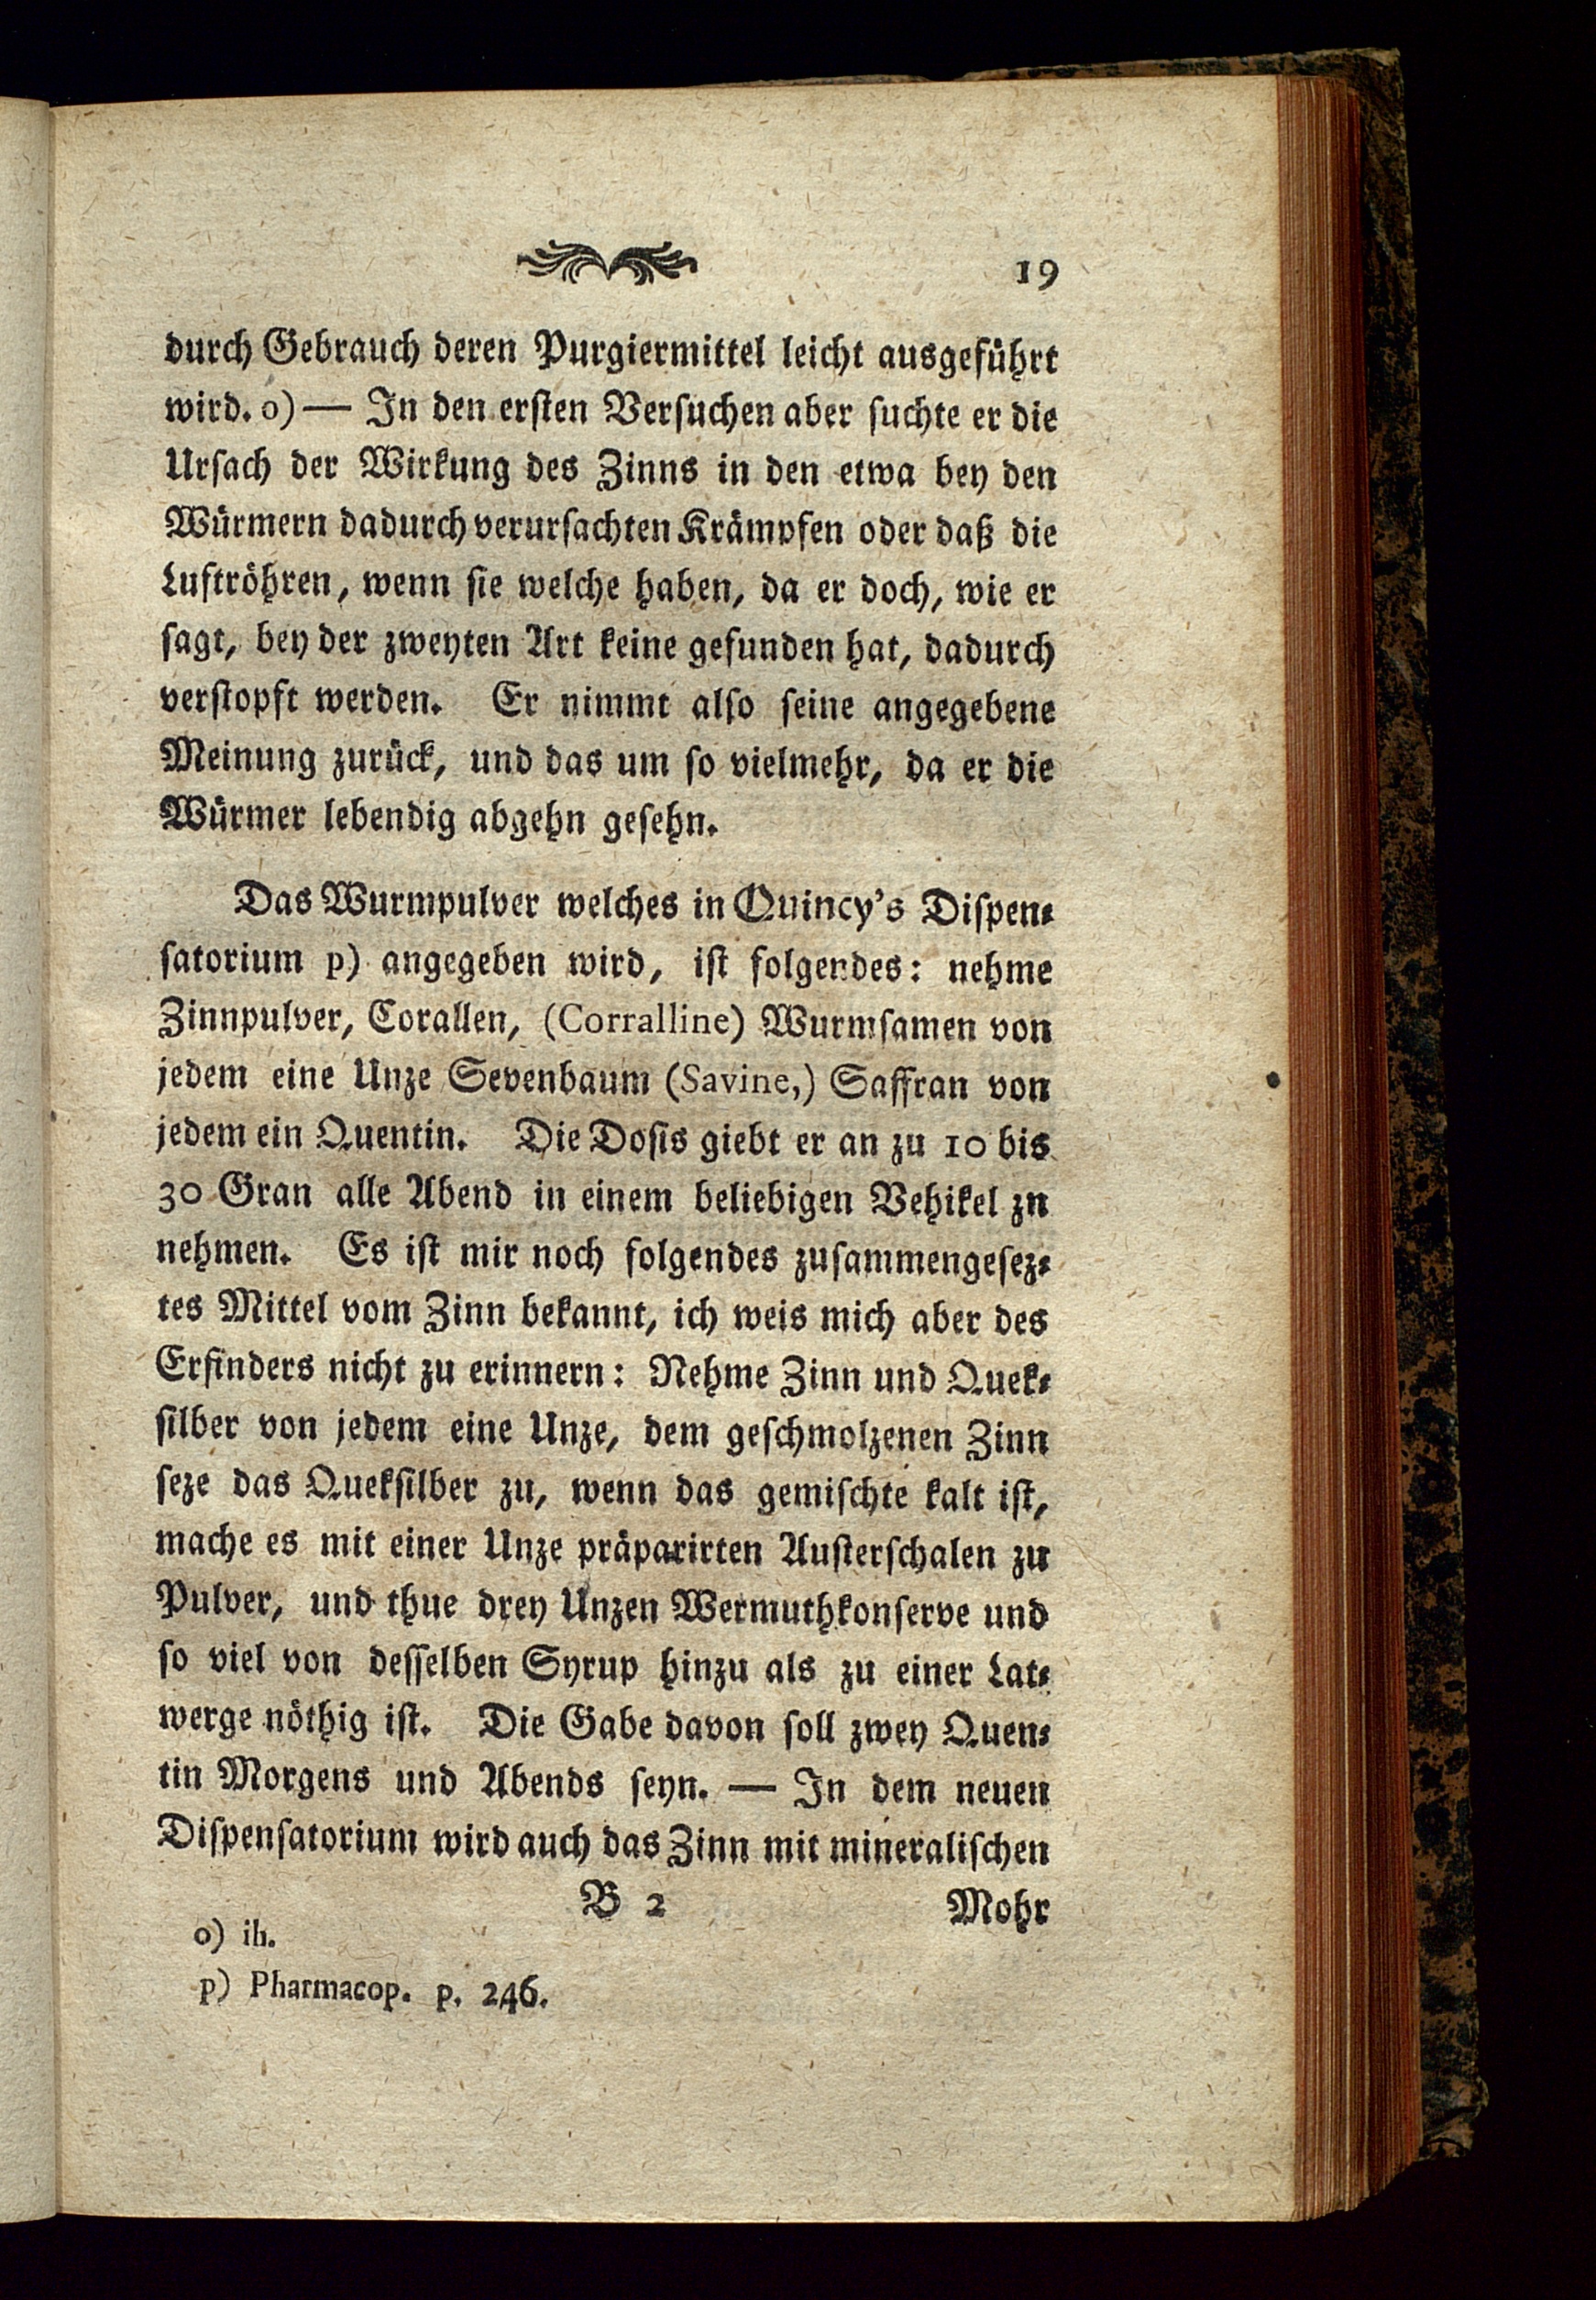 19
durch Gebrauch deren Purgiermittel leicht ausgeführt
wird. o) — In den ersten Versuchen aber suchte er die
Ursach der Wirkung des Zinns in den etwa bey den
Würmern dadurch verursachten Krämpfen oder daß die
Luftröhren, wenn sie welche haben, da er doch, wie er
sagt, bey der zweyten Art keine gefunden hat, dadurch
verstopft werden. Er nimmt also seine angegebene
Meinung zurück, und das um so vielmehr, da er die
Würmer lebendig abgehn gesehn.
Das Wurmpulver welches in Quincy's Dispen-
satorium p) angegeben wird, ist folgendes: nehme
Zinnpulver, Corallen, (Corralline) Wurmsamen von
jedem eine Unze Sevenbaum (Savine,) Saffran von
jedem ein Quentin. Die Dosis giebt er an zu 10 bis
30 Gran alle Abend in einem beliebigen Vehikel zu
nehmen. Es ist mir noch folgendes zusammengesez-
tes Mittel vom Zinn bekannt, ich weis mich aber des
Erfinders nicht zu erinnern: Nehme Zinn und Quek-
silber von jedem eine Unze, dem geschmolzenen Zinn
seze das Queksilber zu, wenn das gemischte kalt ist,
mache es mit einer Unze präparirten Austerschalen zu
Pulver, und thue drey Unzen Wermuthkonserve und
so viel von desselben Syrup hinzu als zu einer Lat-
werge nöthig ist. Die Gabe davon soll zwey Quen-
tin Morgens und Abends seyn. — In dem neuen
Dispensatorium wird auch das Zinn mit mineralischen
B 2 Mohr
o) ib.
p) Pharmacop. p. 246.